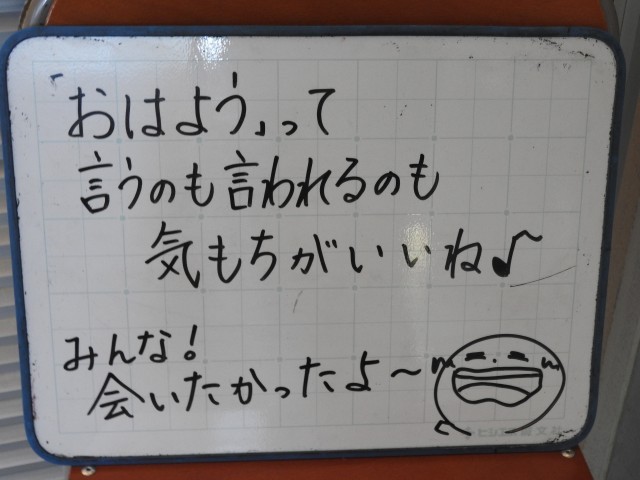 「おはよう」って
言うのも言われるのも
気もちがいいね♪
みんな!
会いたかったよ～